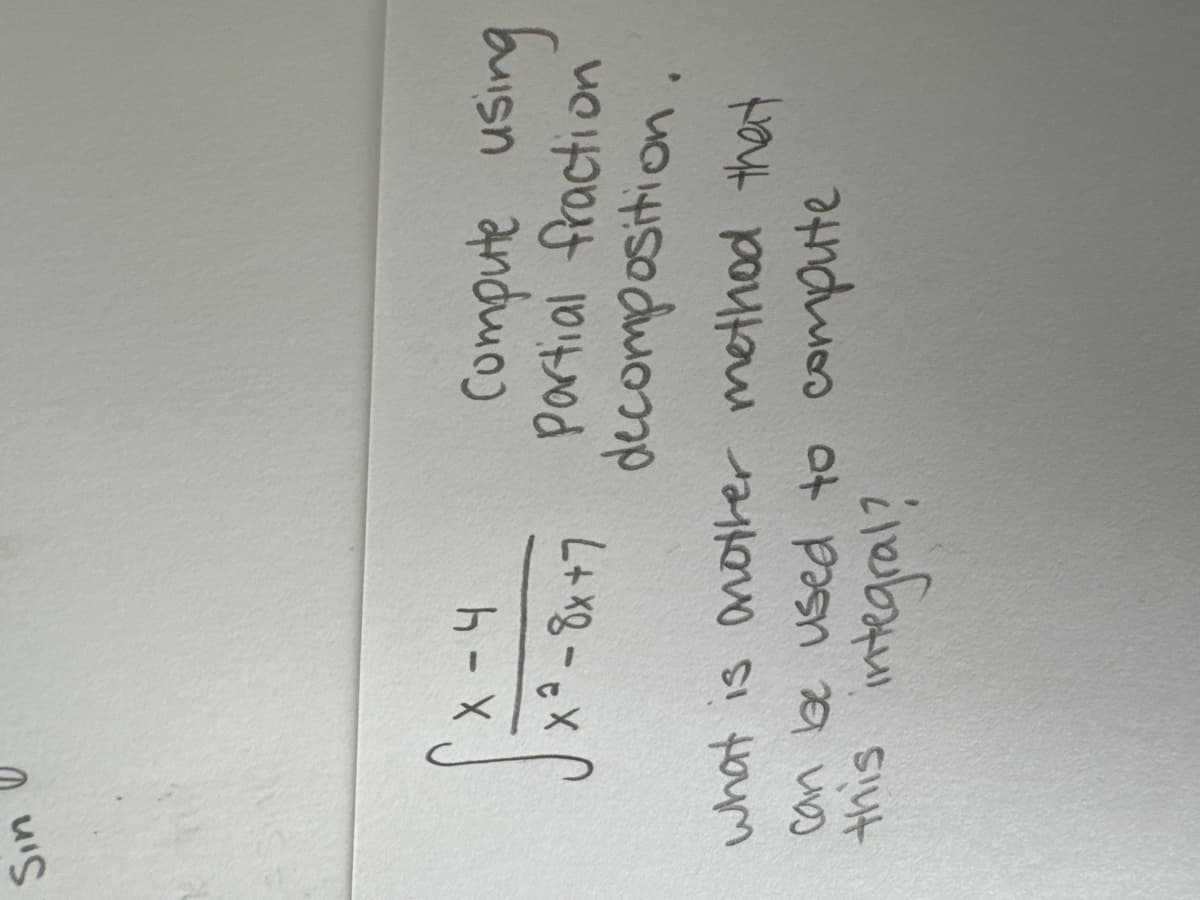 Sin
∫ x - 4 / x² - 8x + 7 Compute using
partial fraction
decomposition.
what is another method that
can be used to compute
this integral?